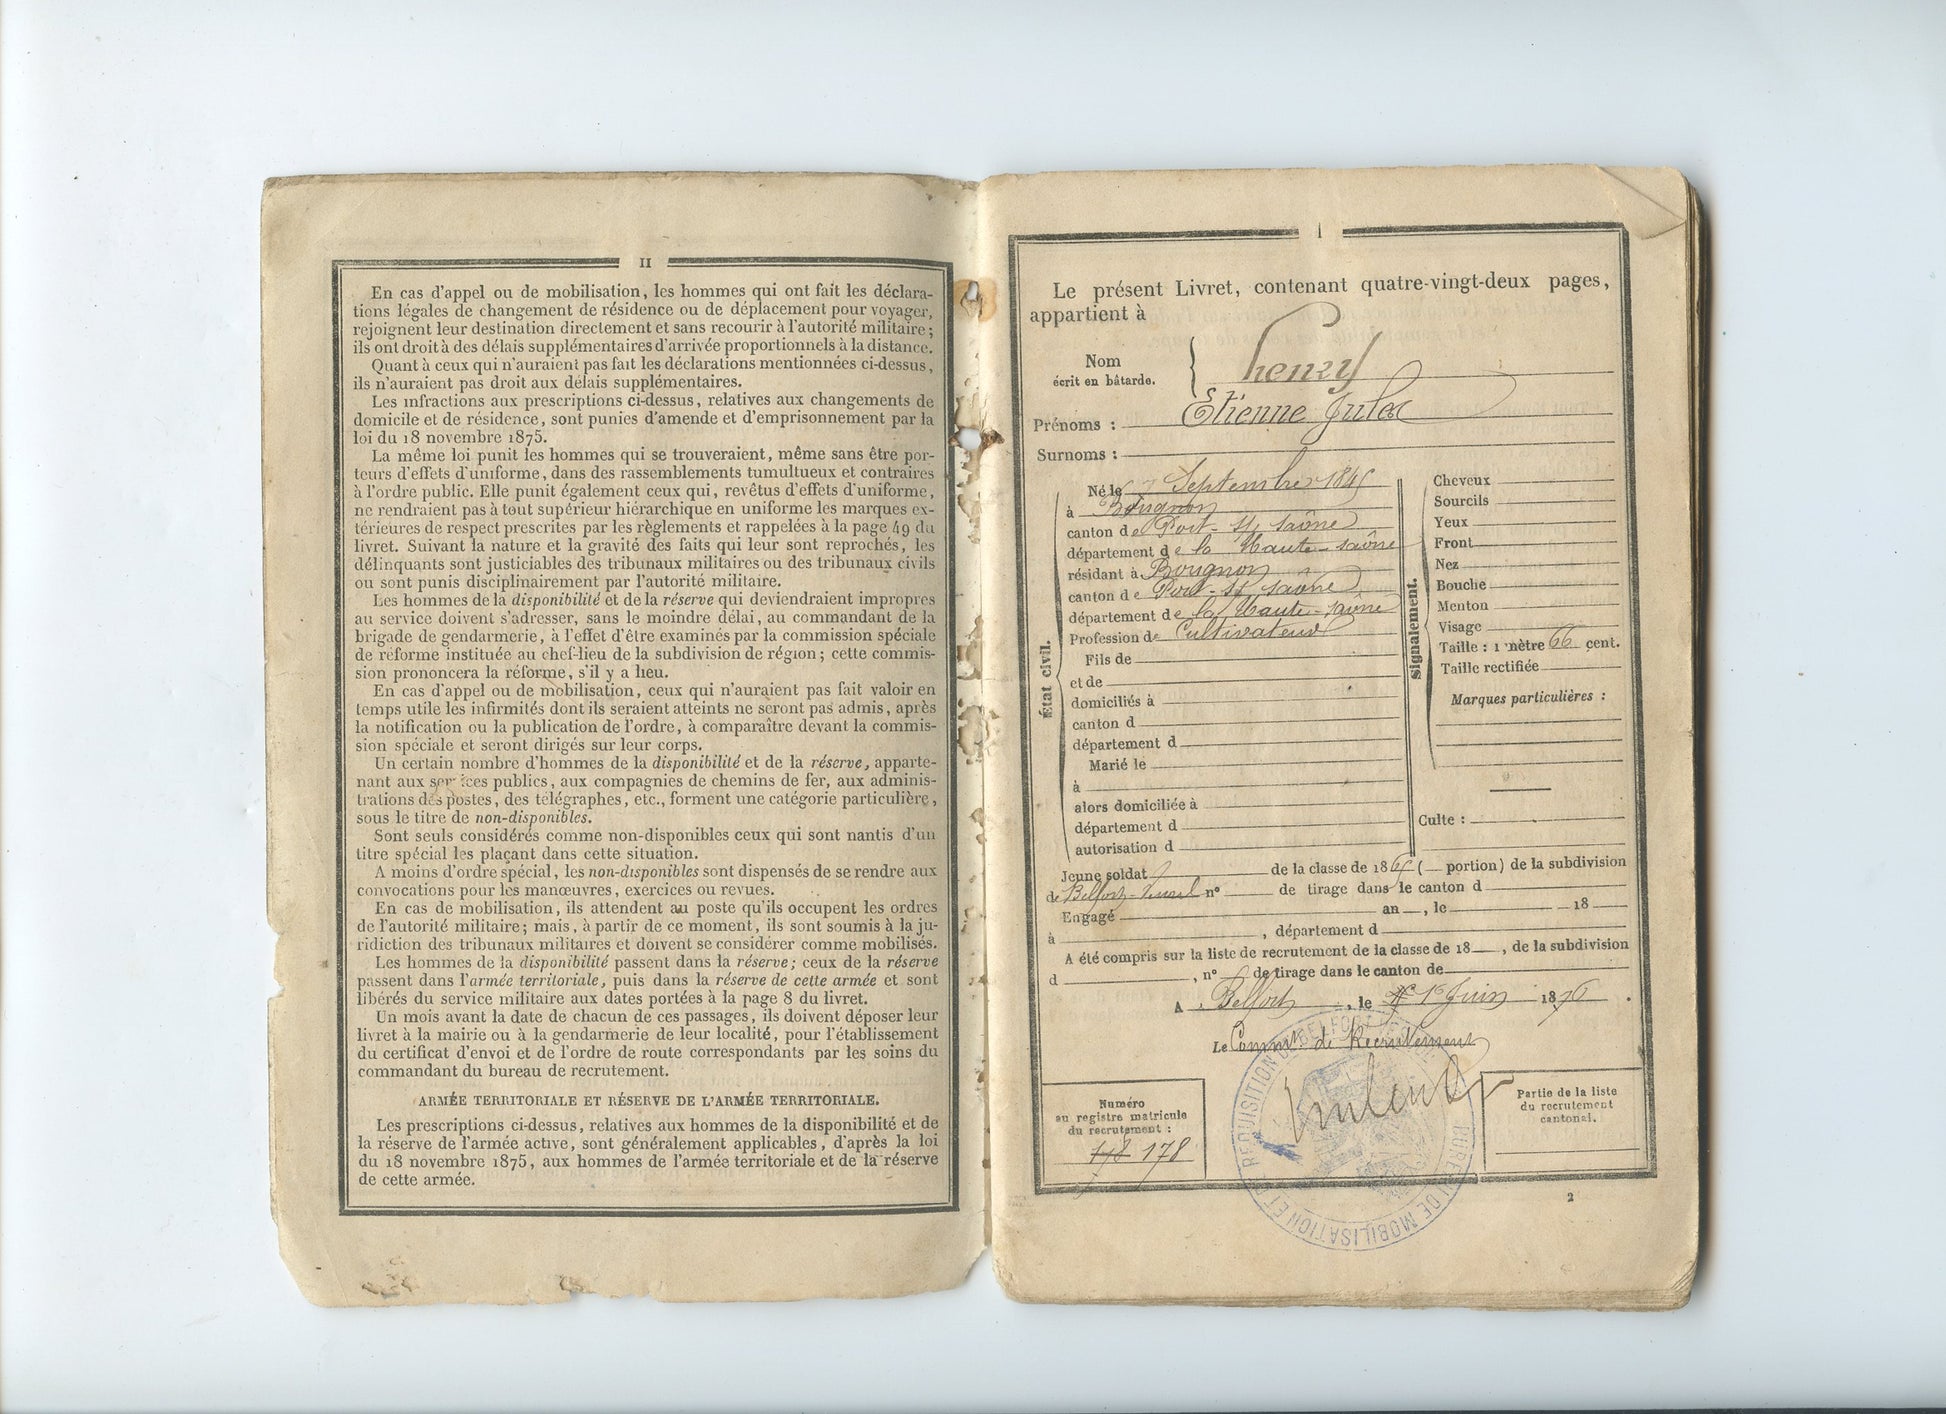 II
En cas d'appel ou de mobilisation, les hommes qui ont fait les déclara-
tions légales de changement de résidence ou de déplacement pour voyager,
rejoignent leur destination directement et sans recourir à l'autorité militaire ;
ils ont droit à des délais supplémentaires d'arrivée proportionnels à la distance.
Quant à ceux qui n'auraient pas fait les déclarations mentionnées ci-dessus,
ils n'auraient pas droit aux délais supplémentaires.
Les infractions aux prescriptions ci-dessus, relatives aux changements de
domicile et de résidence, sont punies d'amende et d'emprisonnement par la
loi du 18 novembre 1875.
La même loi punit les hommes qui se trouveraient, même sans être por-
teurs d'effets d'uniforme, dans des rassemblements tumultueux et contraires
à l'ordre public. Elle punit également ceux qui, revêtus d'effets d'uniforme,
ne rendraient pas à tout supérieur hiérarchique en uniforme les marques ex-
térieures de respect prescrites par les règlements et rappelées à la page 49 du
livret. Suivant la nature et la gravité des faits qui leur sont reprochés, les
délinquants sont justiciables des tribunaux militaires ou des tribunaux civils
ou sont punis disciplinairement par l'autorité militaire.
Les hommes de la disponibilité et de la réserve qui deviendraient impropres
au service doivent s'adresser, sans le moindre délai, au commandant de la
brigade de gendarmerie, à l'effet d'être examinés par la commission spéciale
de réforme instituée au chef-lieu de la subdivision de région ; cette commis-
sion prononcera la réforme, s'il y a lieu.
En cas d'appel ou de mobilisation, ceux qui n'auraient pas fait valoir en
temps utile les infirmités dont ils seraient atteints ne seront pas admis, après
la notification ou la publication de l'ordre, à comparaître devant la commis-
sion spéciale et seront dirigés sur leur corps.
Un certain nombre d'hommes de la disponibilité et de la réserve, apparte-
nant aux services publics, aux compagnies de chemins de fer, aux adminis-
trations des postes, des télégraphes, etc., forment une catégorie particulière,
sous le titre de non-disponibles.
Sont seuls considérés comme non-disponibles ceux qui sont nantis d'un
titre spécial les plaçant dans cette situation.
A moins d'ordre spécial, les non-disponibles sont dispensés de se rendre aux
convocations pour les manœuvres, exercices ou revues.
En cas de mobilisation, ils attendent au poste qu'ils occupent les ordres
de l'autorité militaire ; mais, à partir de ce moment, ils sont soumis à la ju-
ridiction des tribunaux militaires et doivent se considérer comme mobilisés.
Les hommes de la disponibilité passent dans la réserve ; ceux de la réserve
passent dans l'armée territoriale, puis dans la réserve de cette armée et sont
libérés du service militaire aux dates portées à la page 8 du livret.
Un mois avant la date de chacun de ces passages, ils doivent déposer leur
livret à la mairie ou à la gendarmerie de leur localité, pour l'établissement
du certificat d'envoi et de l'ordre de route correspondants par les soins du
commandant du bureau de recrutement.
ARMÉE TERRITORIALE ET RÉSERVE DE L'ARMÉE TERRITORIALE.
Les prescriptions ci-dessus, relatives aux hommes de la disponibilité et de
la réserve de l'armée active, sont généralement applicables, d'après la loi
du 18 novembre 1875, aux hommes de l'armée territoriale et de la réserve
de cette armée.
1
Le présent Livret, contenant quatre-vingt-deux pages,
appartient à
Nom
écrit en bâtarde.
henry
Prénoms : Etienne Jules
Surnoms :
État civil.
Né le 7 Septembre 1845
à Bougnon
canton de Port-s/-Saône
département de la Haute-Saône
résidant à Bougnon
canton de Port-s/-Saône
département de la Haute-Saône
Profession de Cultivateur
Fils de
et de
domiciliés à
canton d
département d
Marié le
à
alors domiciliée à
département d
autorisation d
Signalement.
Cheveux
Sourcils
Yeux
Front
Nez
Bouche
Menton
Visage
Taille : 1 mètre 66 cent.
Taille rectifiée
Marques particulières :
Culte :
Jeune soldat de la classe de 1865 ( portion) de la subdivision
de Belfort n° de tirage dans le canton d
Engagé an , le 18
à , département d
A été compris sur la liste de recrutement de la classe de 18 , de la subdivision
d , n° de tirage dans le canton de
A Belfort, le 1er Juin 1876.
Le Commt de Recrutement
Numéro
au registre matricule
du recrutement :
178
Partie de la liste
du recrutement
cantonal.
BUREAU DE MOBILISATION ET DE REQUISITION DE BELFORT
2